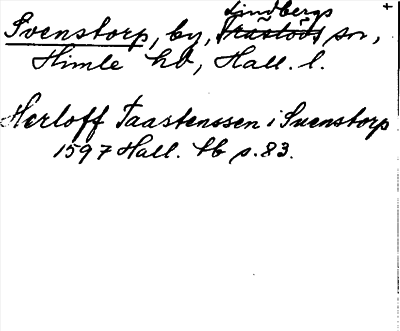 Lindbergs +
Svenstorp, by, Träslövs sn,
Himle hd, Hall. l.
Herloff Taastenssen i Suenstorp
1597 Hall. lb s. 83.